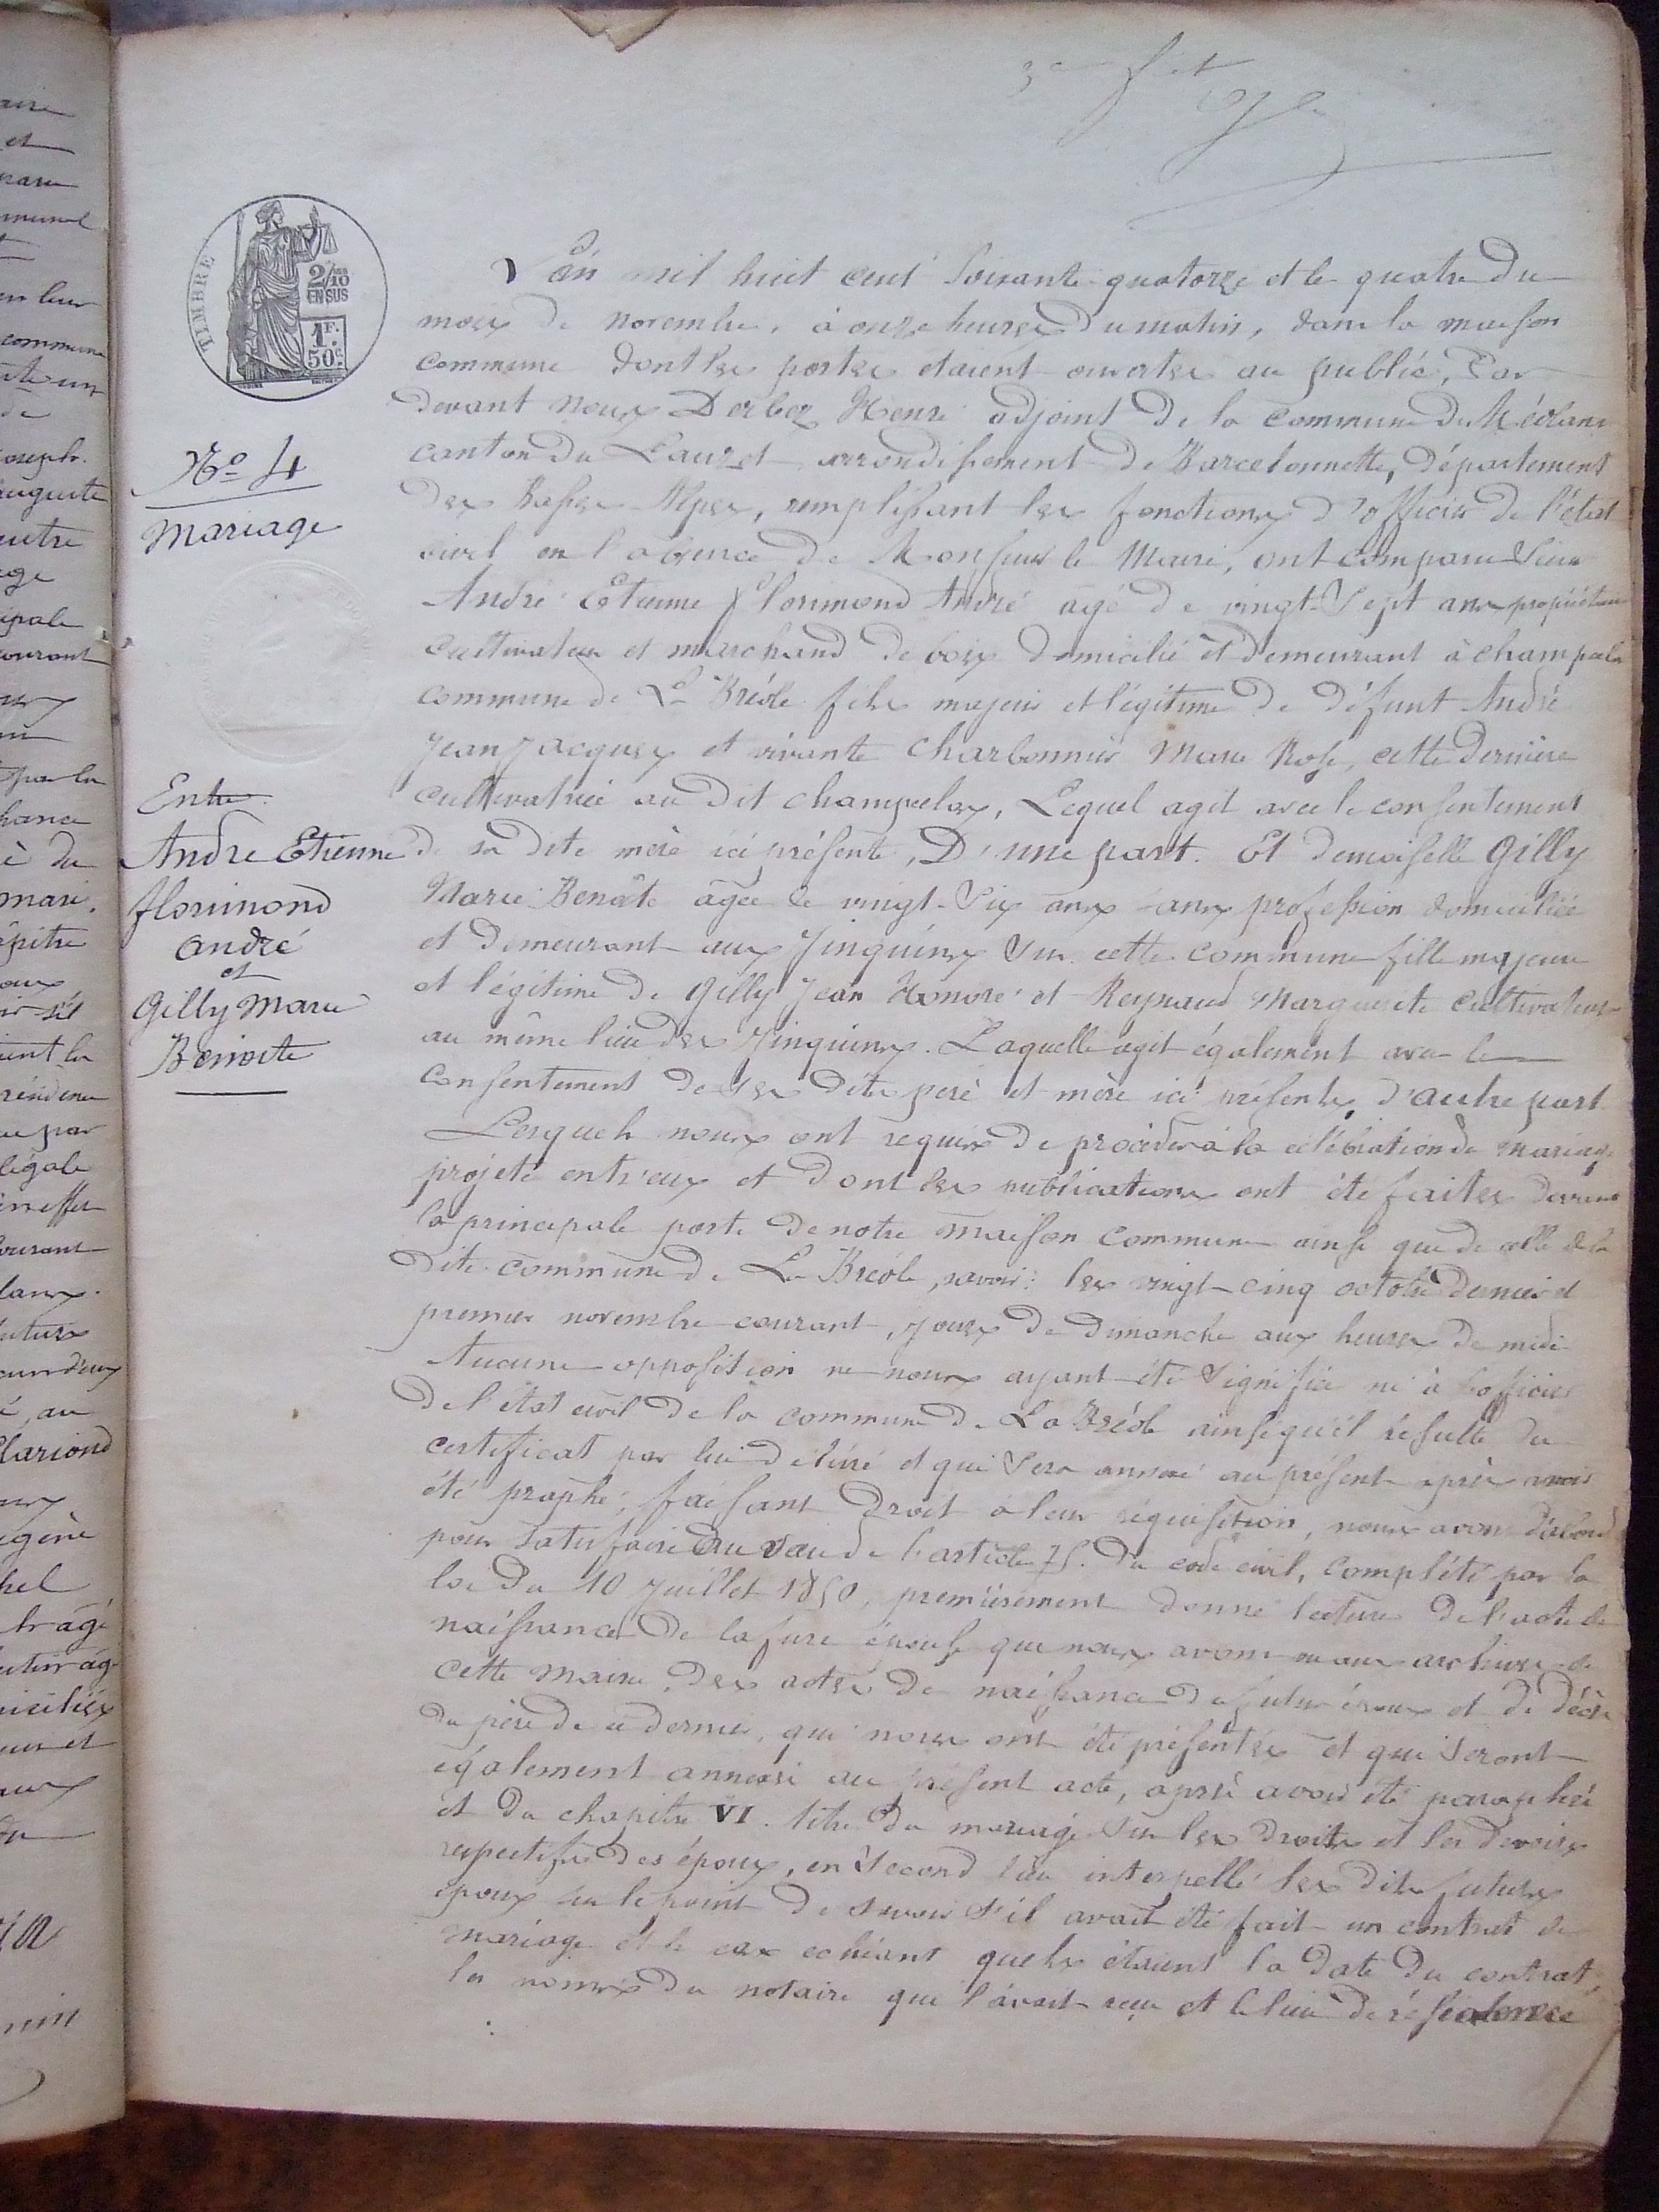 3e f et
TIMBRE
2/10
EN SUS
1F.
50c.
No 4
Mariage
Entre
André Etienne
florimond
andré
et
Gilly Marie
Benoite
L'an mil huit cent soixante quatorze et le quatre du
mois de novembre, à onze heures du matin, dans la maison
commune dont les portes etaient ouvertes au public, Par
devant nous Derbez Henri adjoint de la commune de Méolans
canton du Lauzet arrondissement de Barcelonnette, département
des Basses Alpes, remplissant les fonctions d'officier de l'état
civil en l'absence de Monsieur le Maire, ont comparu Sieur
André Etienne florimond André agé de vingt-sept ans propriétaire
cultivateur et marchand de bois domicilié et demeurant à champcela
commune de La Bréole fils majeur et légitime de défunt André
Jean Jacques et vivante Charbonnier Marie Rose, cette dernière
cultivatrice au dit champcelas, Lequel agit avec le consentement
de sa dite mère ici présente, D'une part. Et demoiselle Gilly
Marie Benoîte agée de vingt-six ans sans profession domiciliée
et demeurant aux Jinguins sur cette commune fille majeure
et légitime de Gilly Jean Honoré et Reynaud Marguerite cultivateurs
au même lieu des Jinguins. Laquelle agit également avec le
consentement de ses dits père et mère ici présents, d'autre part
Lesquels nous ont requis de procéder à la célébration du mariage
projeté entr'eux et dont les publications ont été faites devant
la principale porte de notre maison commune ainsi que de celle de la
dite commune de La Bréole, savoir: les vingt-cinq octobre dernier et
premier novembre courant, jours de dimanche aux heures de midi
Aucune opposition ne nous ayant été signifiée ni à l'officier
de l'état civil de la commune de La Bréole ainsi qu'il résulte du
certificat par lui délivré et qui sera annexé au présent après avoir
été praphé; faisant droit à leur réquisition, nous avons d'abord
pour satisfaire au vœu de l'article 75. du code civil, complété par la
loi du 10 juillet 1850, premièrement donné lecture de l'acte de
naissance de la fure épouse que nous avons aux archives de
cette mairie, des actes de naissance du futur époux et de décès
du père de ce dernier, qui nous ont été présentés et qui seront
également annexés au présent acte, après avoir été paraphés
et du chapitre VI. titre du mariage sur les droits et les devoirs
respectifs des époux, en second lieu interpellé les dits futurs
époux sur le point de savoir s'il avait été fait un contrat de
mariage et le cas echéant quels étaient la date du contrat,
les noms du notaire qui l'avait reçu et le lieu de résidence